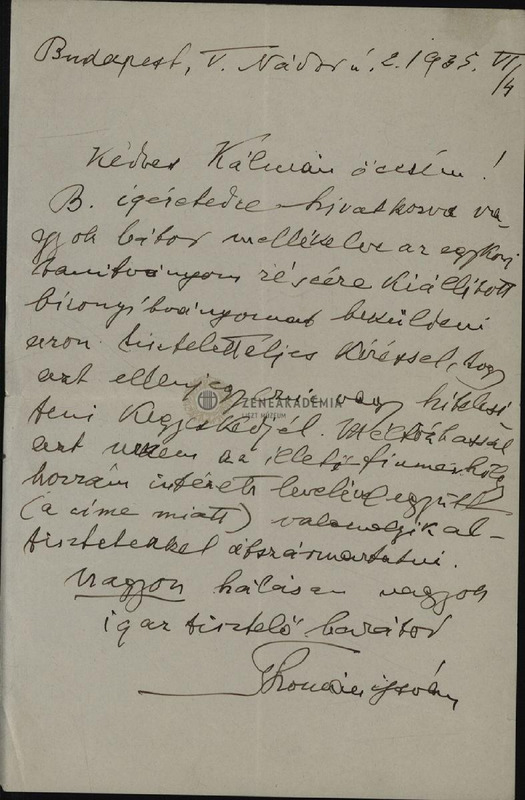 Budapest, V. Nádor u. 2. 1935. VI/4
Kedves Kálmán öcsém!
B. igéretedre hivatkozva va-
gyok bátor mellékelve az egykori
tanitványom részére kiállított
bizonyítványomat beküldeni
azon tiszteletteljes kéréssel, hogy
azt ellenjegyezni vagy hitelesí
teni kegyeskedjél. Méltóztassál
azt nekem az illető
hozzám intézett levelével együtt
(a címe miatt) valamelyik al-
tisztetekkel átszármaztatni.
Nagyon hálásan vagyok
igaz tisztelő barátod
Thomán István
ZENEAKADÉMIA
LISZT MÚZEUM